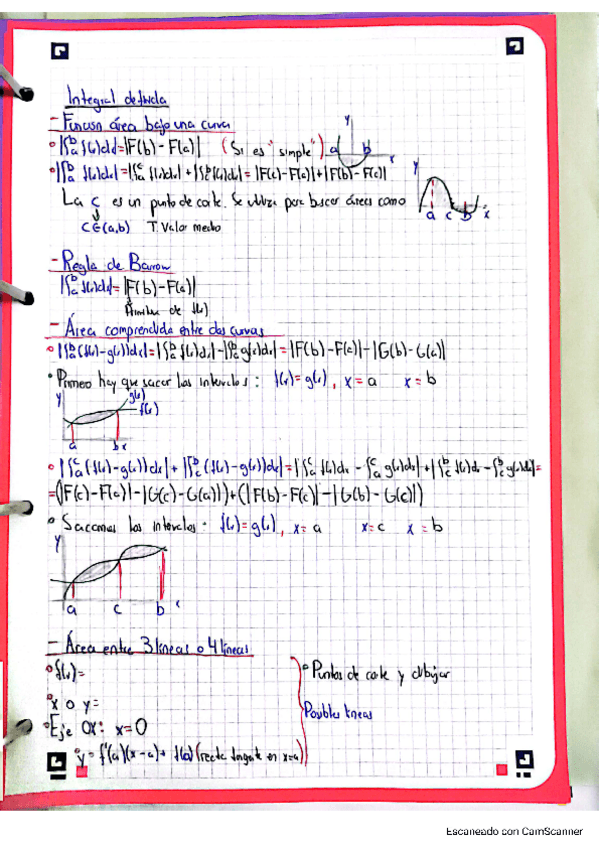 Integral definida
- Función área bajo una curva
|∫ₐᵇ f(x)dx|=|F(b)-F(a)| (Si es "simple")
|∫ₐᵇ f(x)dx|=|∫ₐᶜ f(x)dx|+|∫꜀ᵇ f(x)dx|=|F(c)-F(a)|+|F(b)-F(c)|
La c es un punto de corte. Se utiliza para buscar áreas como
c∈(a,b) T. Valor medio
y
a
b
x
y
a c b x
- Regla de Barrow
|∫ₐᵇ f(x)dx|=|F(b)-F(a)|
Primitiva de f(x)
- Área comprendida entre dos curvas
|∫ₐᵇ (f(x)-g(x))dx|=|∫ₐᵇ f(x)dx|-|∫ₐᵇ g(x)dx|=|F(b)-F(a)|-|G(b)-G(a)|
Primero hay que sacar los intervalos: f(x)=g(x), x=a x=b
y
g(x)
f(x)
a b x
|∫ₐᶜ (f(x)-g(x))dx|+|∫꜀ᵇ (f(x)-g(x))dx|=|∫ₐᶜ f(x)dx-∫ₐᶜ g(x)dx|+|∫꜀ᵇ f(x)dx-∫꜀ᵇ g(x)dx|=
=(|F(c)-F(a)|-|G(c)-G(a)|)+(|F(b)-F(c)|-|G(b)-G(c)|)
Sacamos los intervalos: f(x)=g(x), x=a x=c x=b
y
a c b x
- Área entre 3 líneas o 4 líneas
f(x)=
x o y=
Eje OX: x=0
y=f'(a)(x-a)+f(a) (recta tangente en x=a)
Puntos de corte y dibujar
Posibles líneas
Escaneado con CamScanner